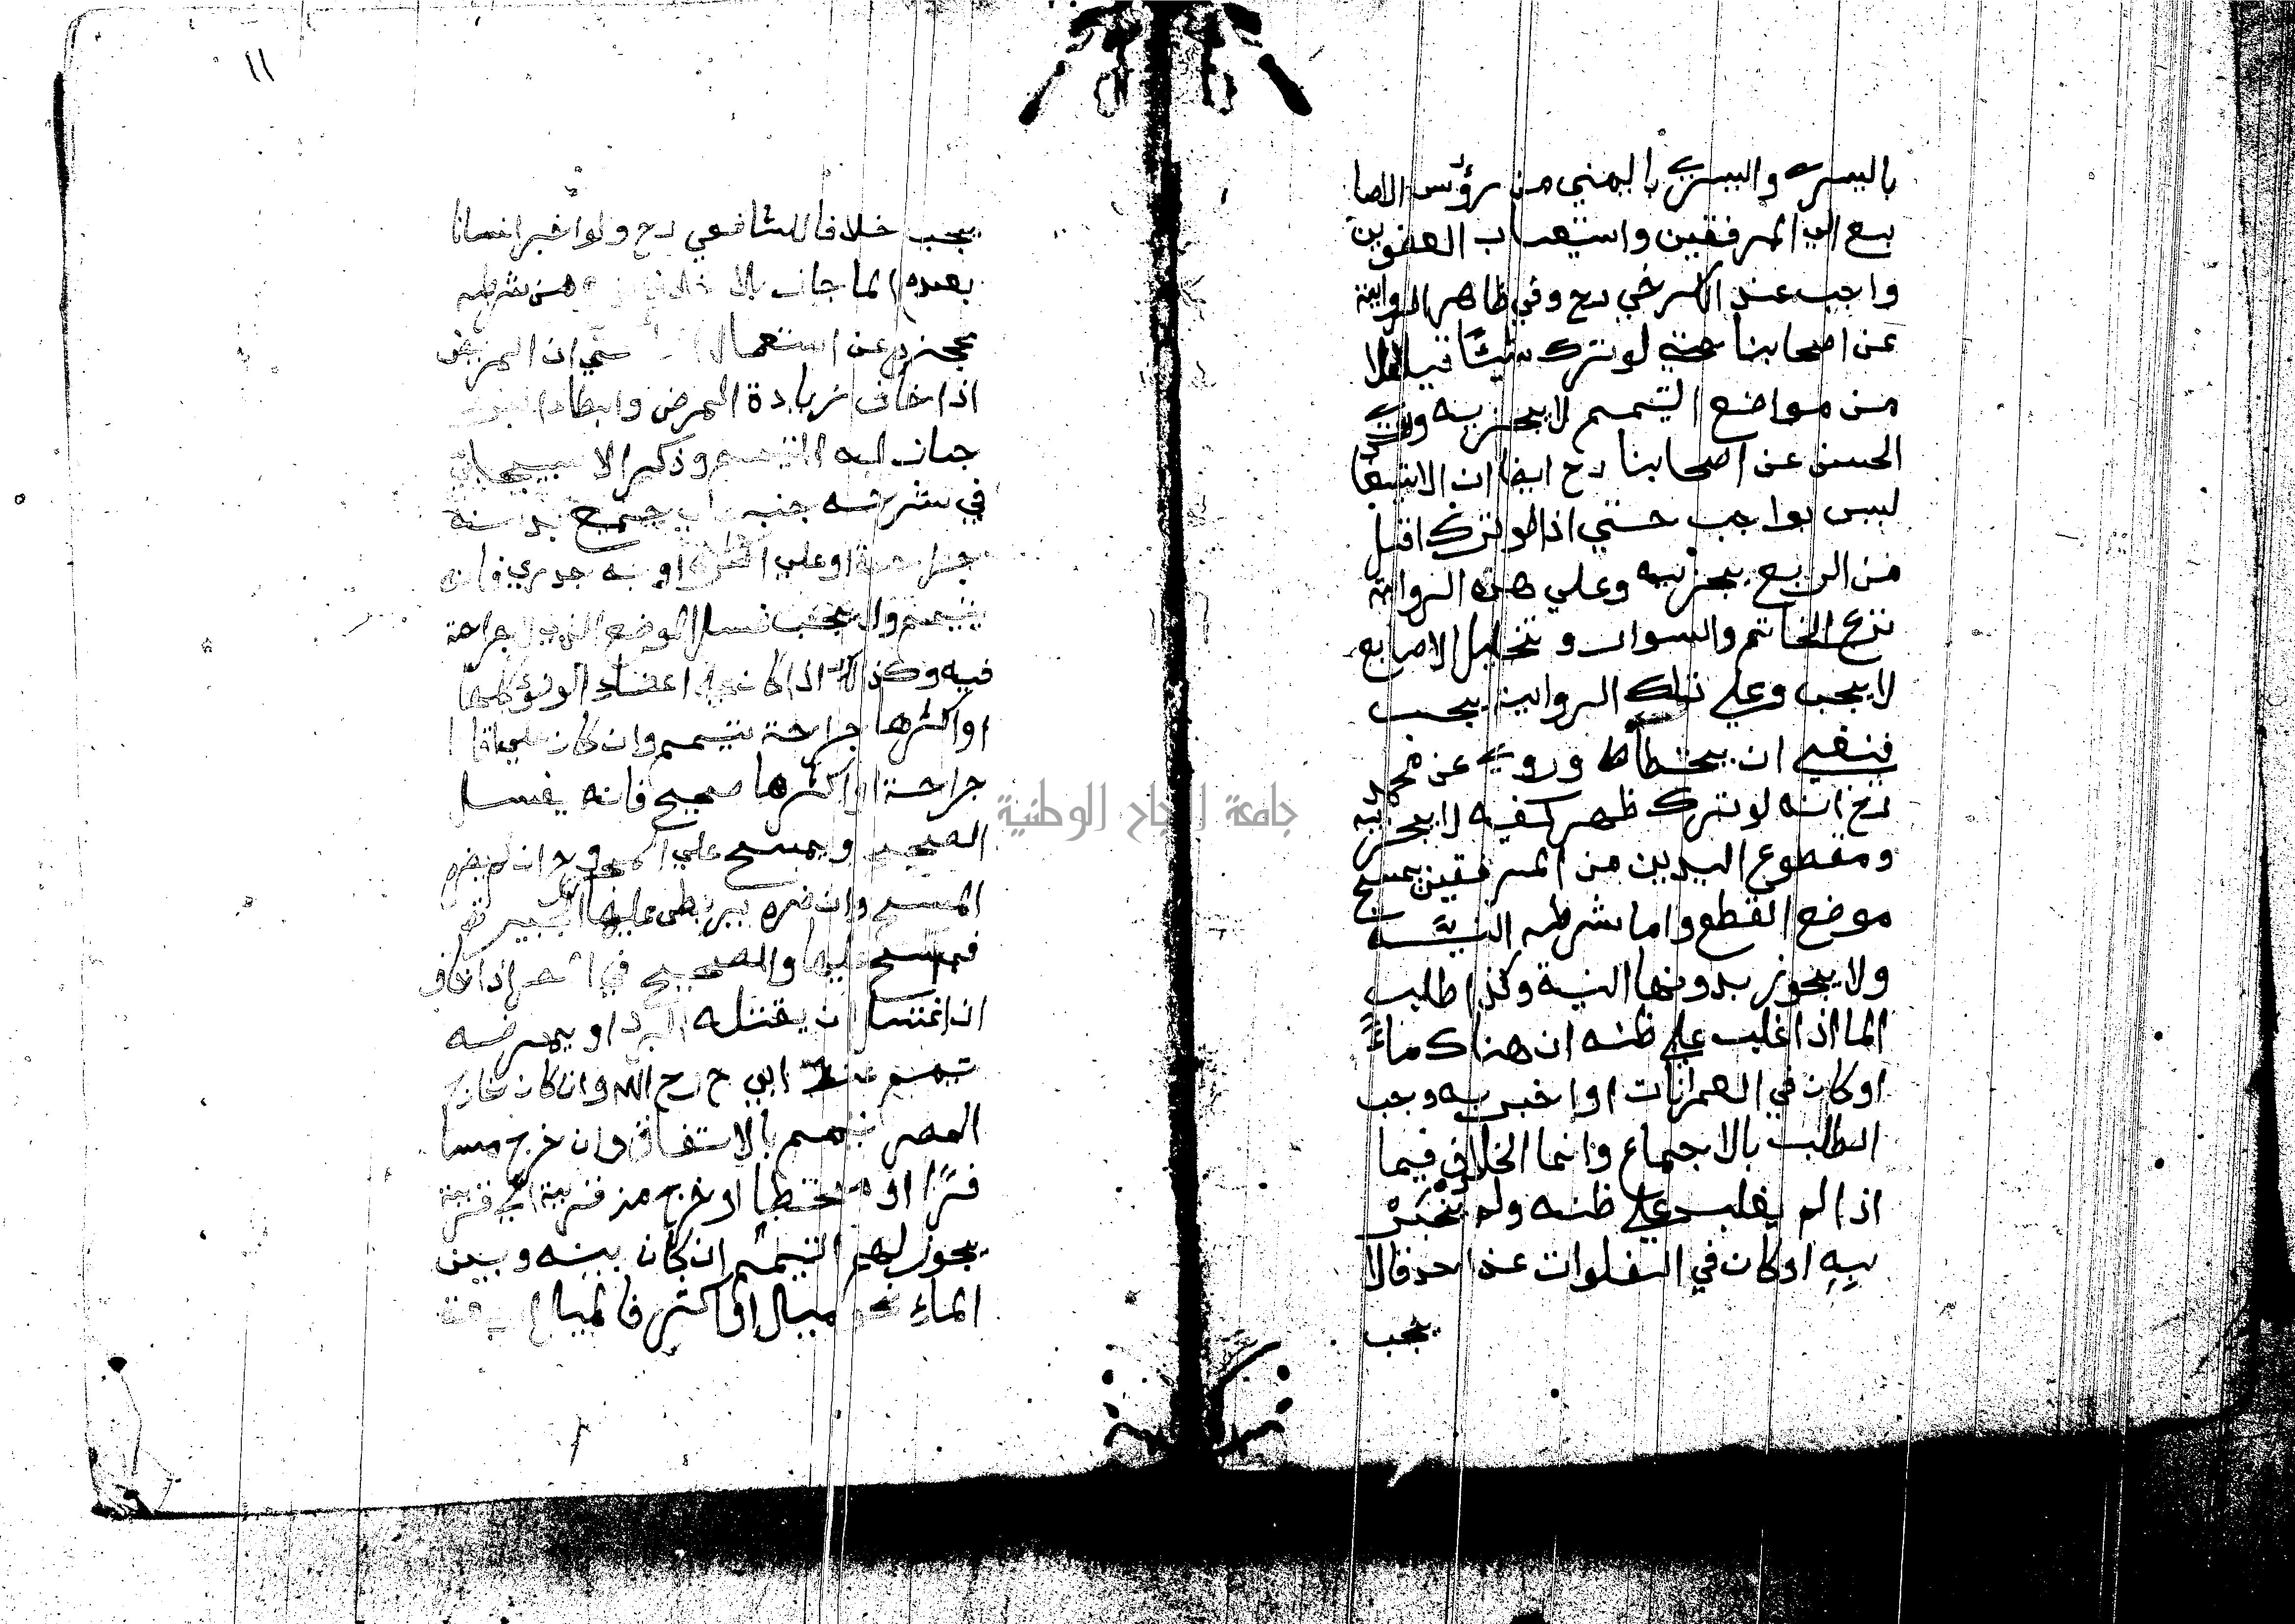 باليسرى واليسرى باليمني من رؤس الاصا
بع الي المرفقين واستيعاب العضوين
واجب عند الكرخي رح وفي ظاهر الرواية
عن اصحابنا حتي لو ترك شيئا قليلا
من مواضع التيمم لا يجزيه وروي
الحسن عن اصحابنا رح ايضا ان الاستيعا
ليس بواجب حتي اذا لو ترك اقل
من الربع يجزيه وعلي هذه الرواية
نزع الخاتم والسوار وتخليل الاصابع
لا يجب وعلي تلك الرواية يجب
فينبغي ان يحتاط وروي عن محمد
رح انه لو ترك ظهر كفيه لا يجزيه
ومقطوع اليدين من المرفقين يمسح
موضع القطع واما شرطه النيّة
ولا يجوز بدونها النية وكذا طلب
الما اذا غلب علي ظنه ان هناك ماءً
او كان في العمرانات او اخبر به وجب
الطلب بالاجماع وانما الخلاف فيما
اذا لم يغلب علي ظنه ولم يخبر
به او كان في الفلوات عندا حد قالا
يجب
١١
يجب خلافا للشافعي رح ولو اخبر انسانا
بعدم الما جاز بلا خلاف ومن شرطه
عجزه عن استعمال حتي ان المريض
اذا خاف زيادة المرض وابطاء البرء
جاز له التيمم وذكر الاسبيجابي
في شرحه جنب جميع بدنه
جراحة او علي اكثره او به جدري فانه
يتيمم ولا يجب غسل الموضع الذي لا جراحة
فيه وكذلك اذا كان اعضاء الوضوء كلها
او اكثرها جراحة تيمم وان كان علي اقلها
جراحة او اكثرها صحيح فانه يغسل
الصحيح ويمسح علي المجروح ان لم يضره
المسح وان ضره يربطي عليها الجبيرة
فيمسح عليها والصحيح في المصر اذا خاف
ان اغتسل ان يقتله البرد او يمرضه
تيمم عند ابي ح رح الله وان كان خارج
المصر تيمم بالاتفاق وان خرج مسا
فرًا او محتطبا او خرج من قرية الي قرية
يجوز لهم التيمم ان كان بينه وبين
الماء نحو ميال او اكثر فالميال
جامعة النجاح الوطنية